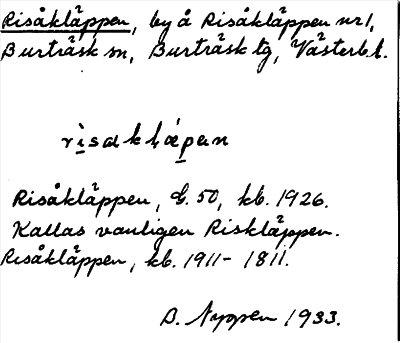 Risåkläppen, by å Risåkläppen nr 1,
Burträsk sn, Burträsk tg, Västerb l.
risakḷæpən
Risåkläppen, E. 50, kb. 1926.
Kallas vanligen Riskläppen.
Risåkläppen, kb. 1911 - 1811.
B. Nyppen 1933.